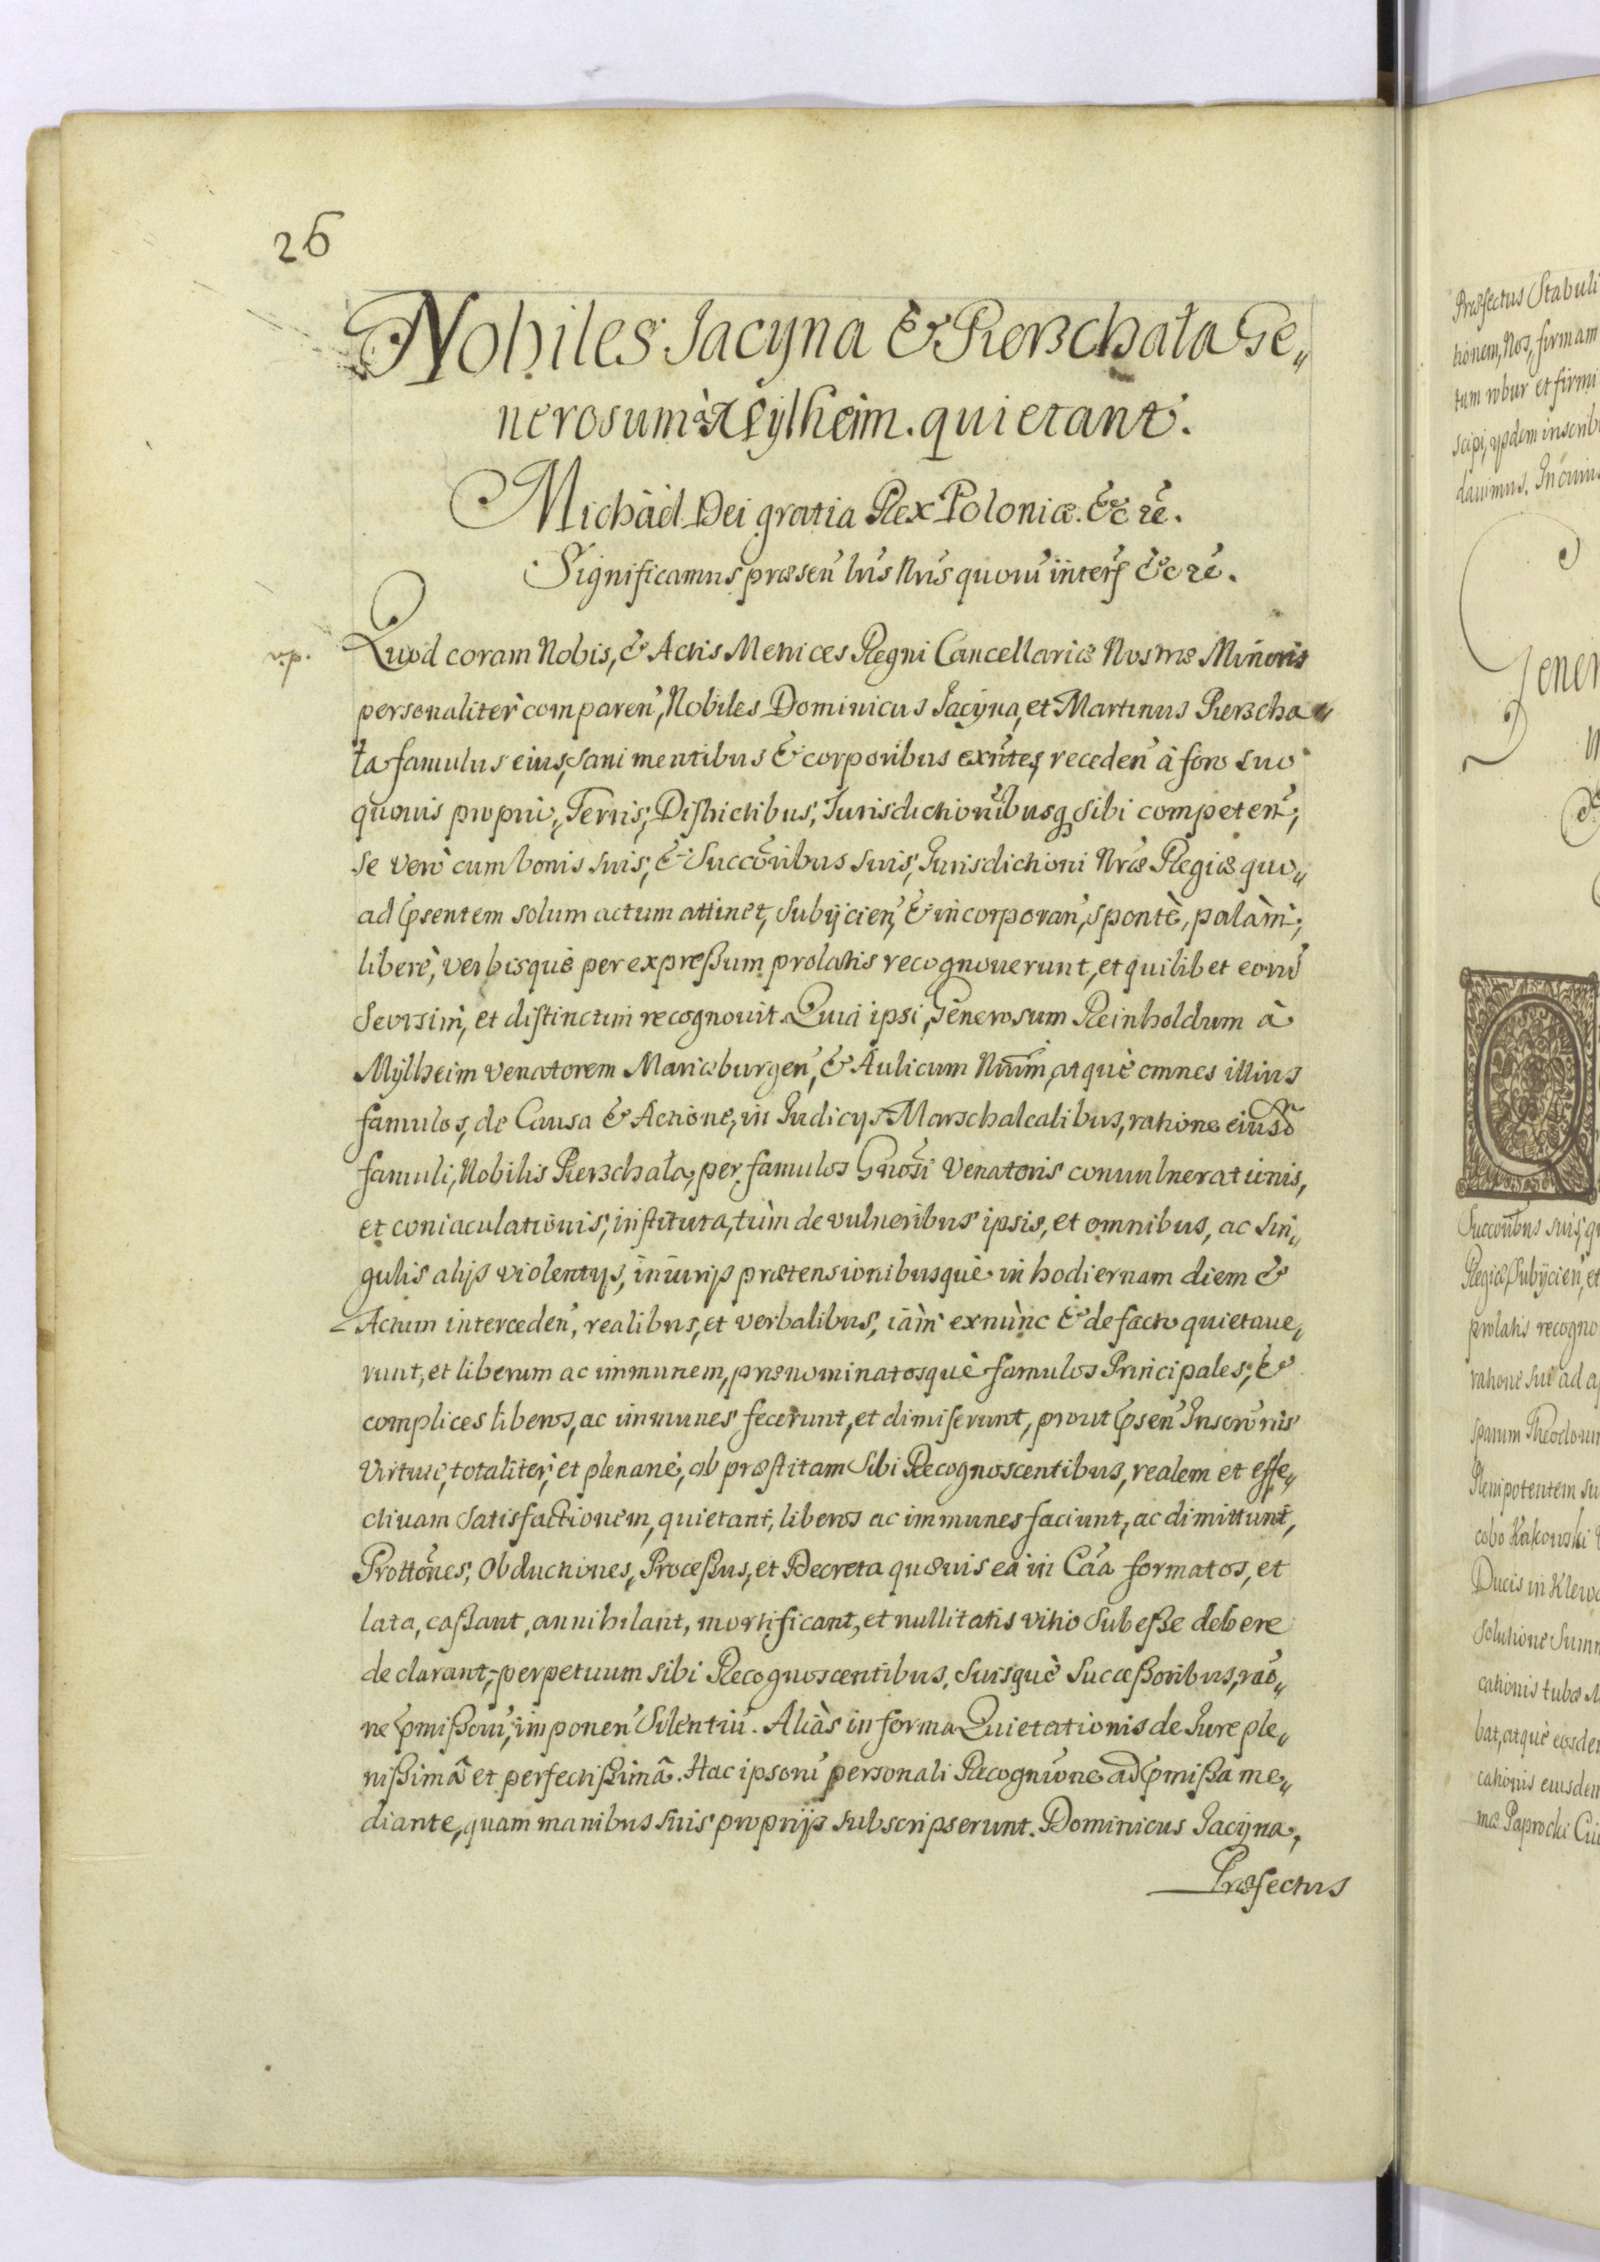 26
Nobiles Jacyna & Pierzchała Ge„
nerosum à Mÿlheim quietant.
Michäel Dei gratia Rex Poloniæ. &c rē.
Significamus præsen̄ lr̄is Nr̄is quorū inters̄ &c rē.
v.p.
Quod coram Nobis, & Actis Metrices Regni Cancellariæ Nostræ Minoris
personalitèr comparen̄, Nobiles Dominicus Jacÿna, et Martinus Pierzcha„
ła famulus eius, sani mentibus & corporibus exn̄tes, receden̄ à foro suo
quouis proprio, Terris, Districtibus, Jurisdictionībusq̨ sibi competen̄,
se verò cum bonis suis, & Succōribus suis, Jurisdictioni Nr̄æ Regiæ quo„
ad p̄sentem solum actum attinet, subÿcien̄, & incorporan̄, spontè, palàm,
liberè, verbisquè per expreßum prolatis recognouerunt, et quilibet eorū
seorsim, et distinctim recognouit. Quia ipsi, Generosum Reinholdum à
Mÿlheim Venatorem Mariæburgen̄, & Aulicum Nr̄um, atquè omnes illius
famulos, de Causa & Actione, in Judicÿs Marschalcalibus, ratione eiusd̄
famuli, Nobilis Pierzchała, per famulos Gnōsi Venatoris conuulnerationis,
et coniaculationis, instituta, tùm de vulneribus ipsis, et omnibus, ac sin„
gulis alÿs violentÿs, iniurÿs prætensionibusquè in hodiernam diem &
Actum interceden̄, realibus, et verbalibus, iàm exnùnc & de facto quietaue„
runt, et liberum ac immunem, prænominatosquè famulos Principales, &
complices liberos, ac immunes fecerunt, et dimiserunt, prout p̄sen̄ Inscrōnis
Virtute, totalitèr, et plenariè, ob præstitam sibi Recognoscentibus, realem et effe„
ctiuam satisfactionem, quietant, liberos ac immunes faciunt, ac dimittunt,
Prottōnes, Obductiones, Proceßus, et Decreta quæuis ea in Cāa formatos, et
lata, caßant, annihilant, mortificant, et nullitatis vitio subeße debere
declarant, perpetuum sibi Recognoscentibus, suisquè Succeßoribus, raō„
ne p̄mißorū, imponen̄ silentiū. Aliàs in forma Quietationis de Jure ple„
nißimâ et perfectißimâ. Hac ipsorū personali Recognīone ad p̄mißa me„
diante, quam manibus suis proprÿs subscripserunt. Dominicus Jacÿna,
Præfectus
Præfectus Stabuli
tionem, Nos, firmam
tum robur et firmi
scipi, ÿsdem inscrib
dauimus. In cuius
Gener
Succorībus suis, q
Regiæ, subÿcien̄, et
prolatis recogno
ratione suē ad a
Plenipotentem su
Ducis in Klewa
Solutione Sum
cationis tubæ M
bat, atquè eosdem
cationis eiusdem
mæ Paprocki